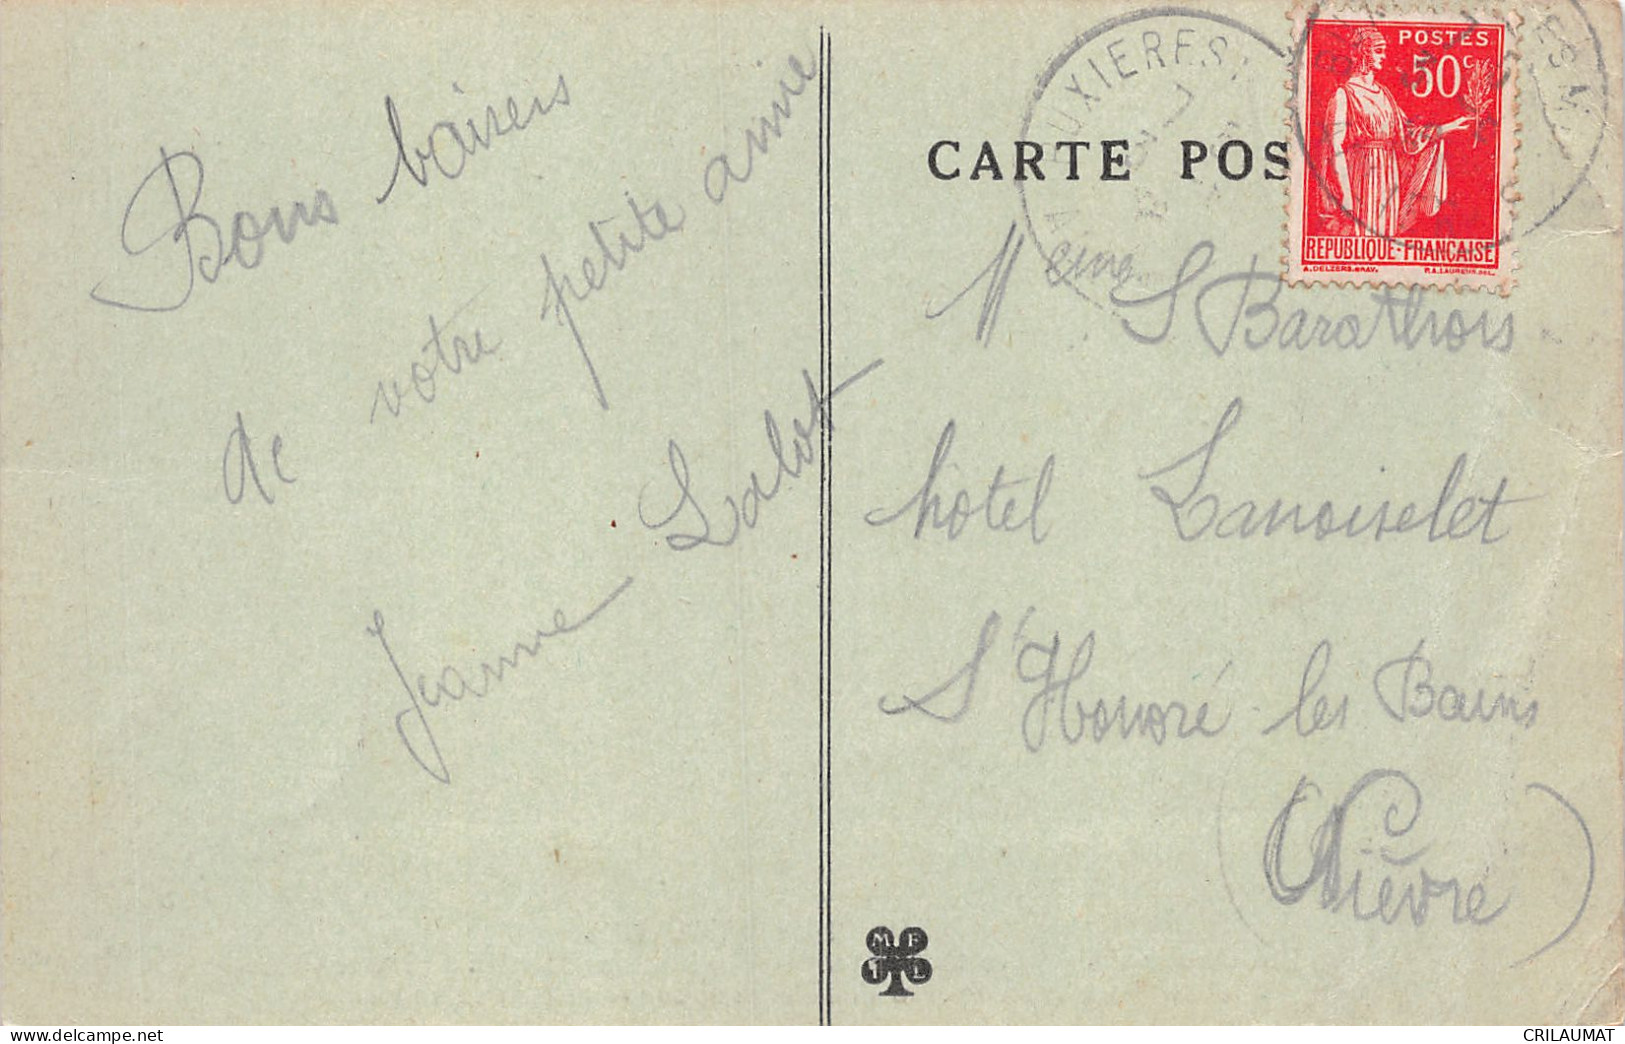 Bons baisers
de votre petite amie
Jeanne Lalot
CARTE POS
POSTES
50c
REPUBLIQUE-FRANÇAISE
A.DELZERS.GRAV. P.A.LAURENS.DEL.
UXIERES
Meme S Barathrois
hôtel Lanoiselet
St Honoré les Bains
(Nièvre)
M F
T L
www.delcampe.net
CRILAUMAT